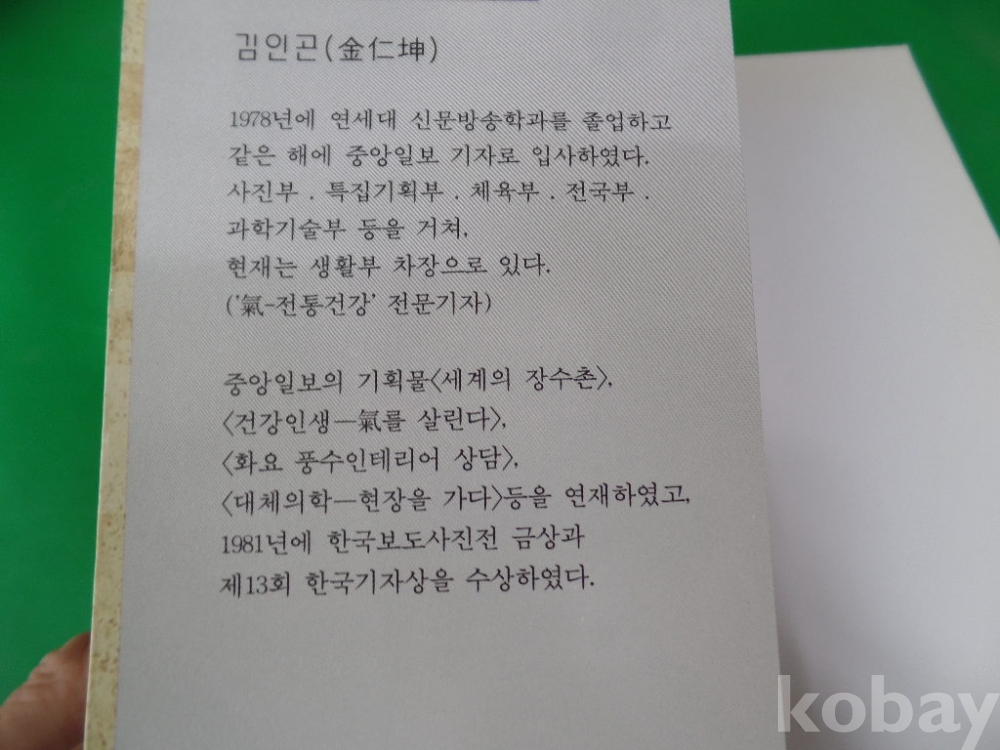 김인곤(金仁坤)
1978년에 연세대 신문방송학과를 졸업하고
같은 해에 중앙일보 기자로 입사하였다.
사진부 . 특집기획부 . 체육부 . 전국부 .
과학기술부 등을 거쳐,
현재는 생활부 차장으로 있다.
('氣-전통건강' 전문기자)
중앙일보의 기획물〈세계의 장수촌〉,
〈건강인생—氣를 살린다〉,
〈화요 풍수인테리어 상담〉,
〈대체의학—현장을 가다〉등을 연재하였고,
1981년에 한국보도사진전 금상과
제13회 한국기자상을 수상하였다.
kobay